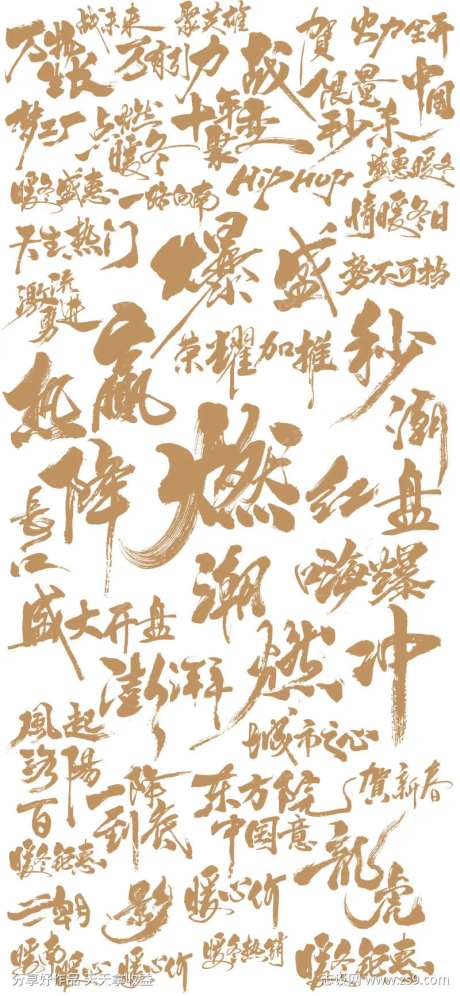 战未来
聚英雄
贺
火力全开
万物生长
万有引力
战
限量
中国
梦工厂
点燃
暖冬
十年
聚
变
秒杀
盛惠暖冬
暖冬盛惠
一路向南
HIP HOP
情暖冬日
天生热门
爆
盛
势不可挡
激流勇进
赢
荣耀加推
秒
热
潮
降
燃
红
盘
长
潮
嗨爆
盛大开盘
澎湃
燃
冲
城市之心
風起
洛陽
一降到底
东方院
贺新春
百
中国意
暖冬钜惠
龍
虎
影
暖心价
暖冬热销
暖冬钜惠
暖心价
分享好作品 天天拿收益
志设网 www.zs9.com